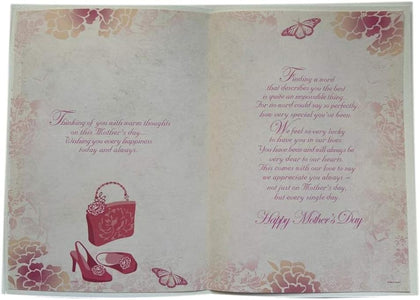 Thinking of you with warm thoughts
on this Mother's day...
Wishing you every happiness
today and always.
Finding a word
that describes you the best
is quite an impossible thing
For no word could say so perfectly
how very special you've been.
We feel so very lucky
to have you in our lives
You have been and will always be
very dear to our hearts.
This comes with our love to say
we appreciate you always –
not just on Mother's day,
but every single day
Happy Mother's Day